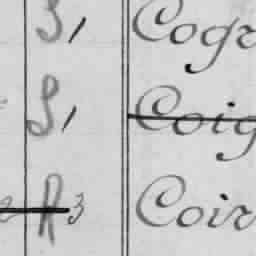 S, Cogr
S, Coig
A 3 Coir